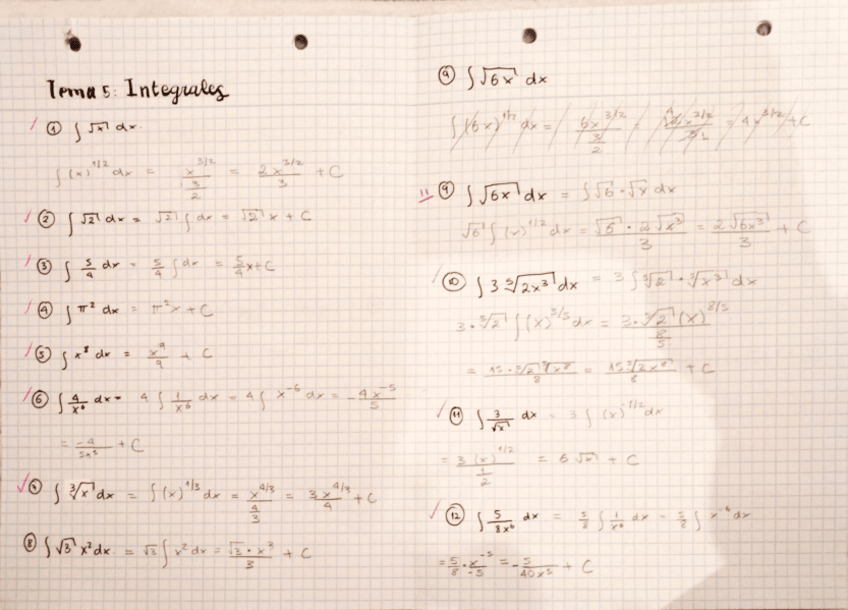 Tema 5: Integrales
① ∫ √x dx.
∫ (x)^1/2 dx = x^3/2 / (3/2) = 2x^3/2 / 3 + C
② ∫ √2 dx = √2 ∫ dx = √2 x + C
③ ∫ 5/4 dx = 5/4 ∫ dx = 5/4 x + C
④ ∫ π² dx = π² x + C
⑤ ∫ x⁸ dx = x⁹/9 + C
⑥ ∫ 4/x⁶ dx = 4 ∫ 1/x⁶ dx = 4 ∫ x⁻⁶ dx = -4x⁻⁵/5
= -4/5x⁵ + C
∫ ∛x dx = ∫ (x)^1/3 dx = x^4/3 / (4/3) = 3x^4/3 / 4 + C
⑧ ∫ √3 x² dx = √3 ∫ x² dx = √3 · x³ / 3 + C
⑨ ∫ √6x dx
∫ (6x)^1/2 dx = 6x^3/2 / (3/2) = = 4x^3/2 + C
11 ⑨ ∫ √6x dx = ∫ √6 · √x dx
√6 ∫ (x)^1/2 dx = √6 · 2√x³ / 3 = 2√6x³ / 3 + C
⑩ ∫ 3 ⁵√2x³ dx = 3 ∫ ⁵√2 · ⁵√x³ dx
3 · ⁵√2 ∫ (x)^3/5 dx = 3 · ⁵√2 (x)^8/5 / (8/5)
= 15 · ⁵√2 ⁵√x⁸ / 8 = 15 ⁵√2x⁸ / 8 + C
⑪ ∫ 3/√x dx = 3 ∫ (x)^-1/2 dx
= 3 (x)^1/2 / (1/2) = 6 √x + C
⑫ ∫ 5/8x⁶ dx = 5/8 ∫ 1/x⁶ dx = 5/8 ∫ x⁻⁶ dx
= 5/8 · x⁻⁵/-5 = - 5/40x⁵ + C